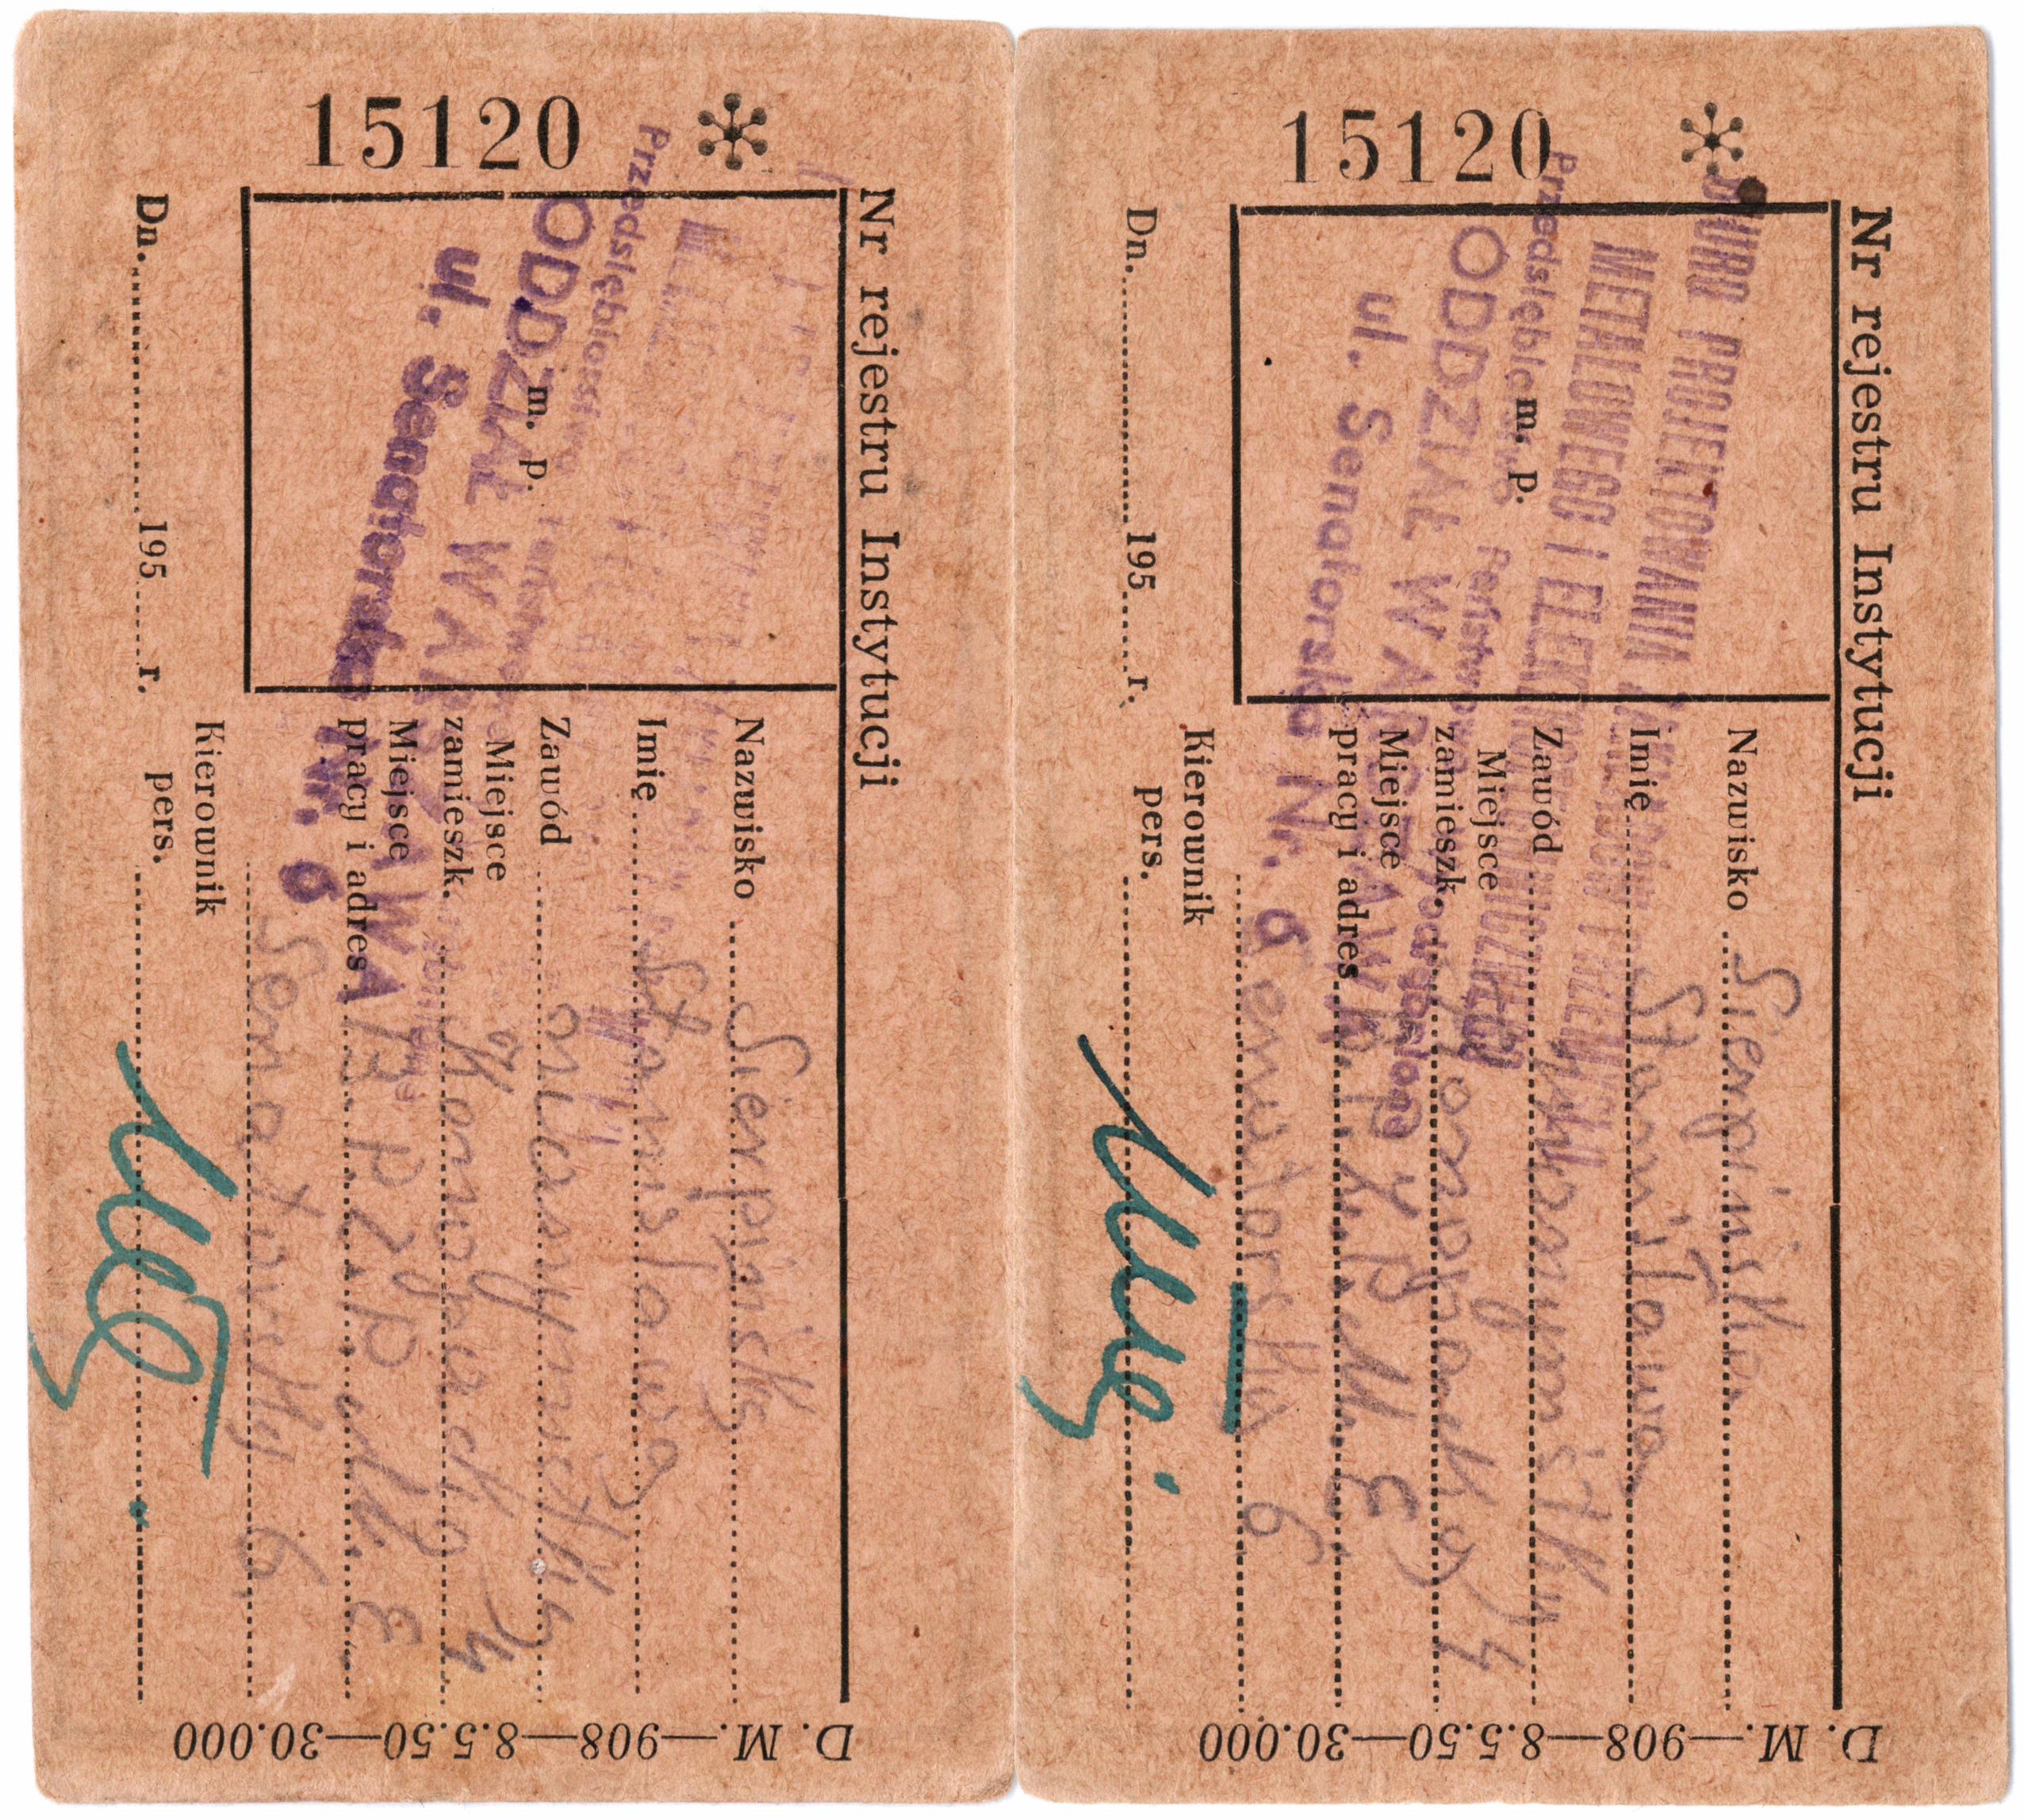 15120
Nr rejestru Instytucji
Przedsiębiorstwo
ODDZIAŁ WARSZAWA
ul. Senatorska Nr. 6
m. p.
Nazwisko Sierpińska
Imię Stanisława
Zawód
Miejsce
zamieszk. Konopacka 4
Miejsce
pracy i adres B.P.Z.P.M.E
Senatorska 6
Kierownik
pers.
Dn. 195 r.
D. M.—908—8.5.50—30.000
15120
Nr rejestru Instytucji
BIURO PROJEKTOWANIA ZAKŁADÓW PRZEMYSŁU
METALOWEGO i ELEKTROTECHNICZNEGO
Przedsiębiorstwo Państwowe Wyodrębnione
ODDZIAŁ WARSZAWA
ul. Senatorska Nr. 6
m. p.
Nazwisko Sierpińska
Imię Stanisława
Zawód
Miejsce
zamieszk. Konopacka 4
Miejsce
pracy i adres B.P.Z.P.M.E
Senatorska 6
Kierownik
pers.
Dn. 195 r.
D. M.—908—8.5.50—30.000